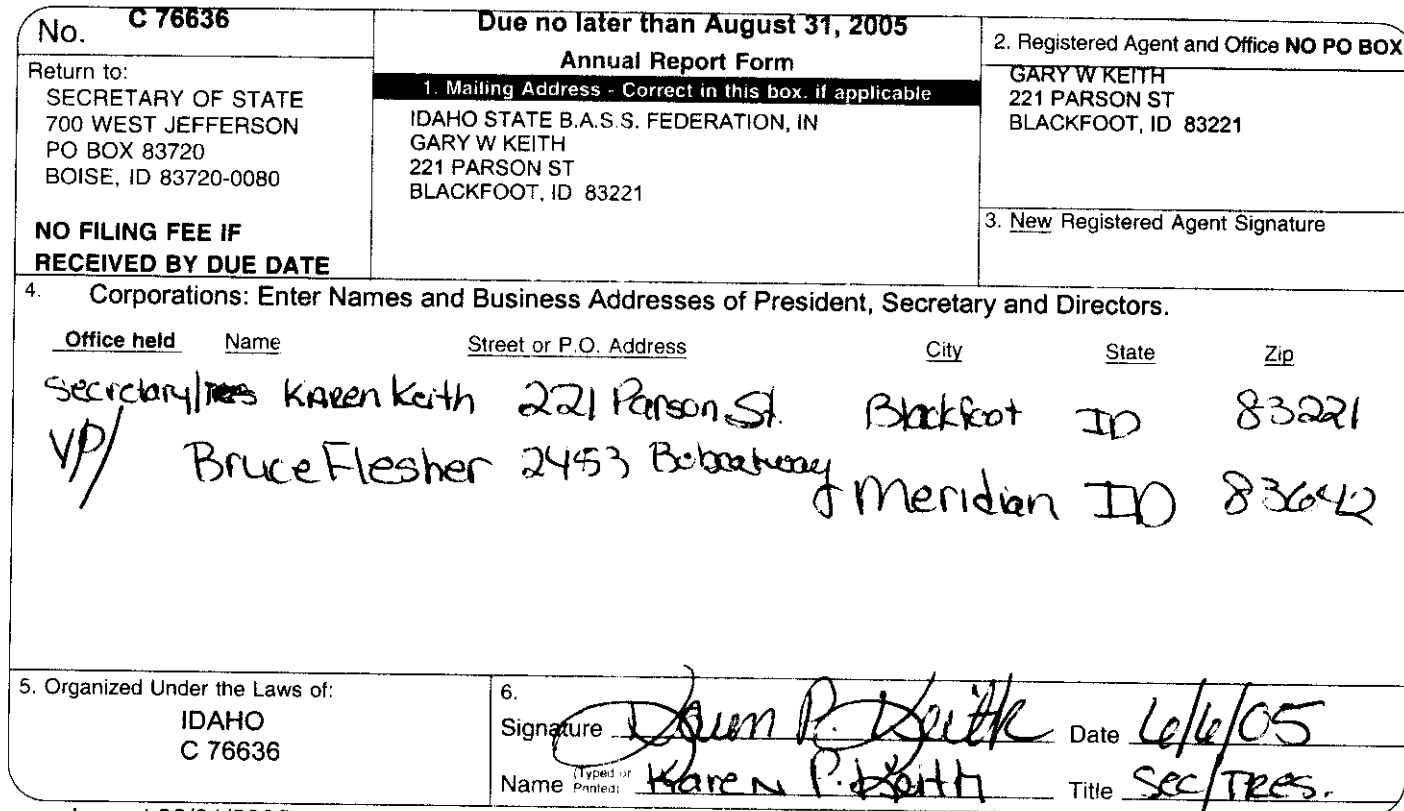 No. C 76636
Return to:
SECRETARY OF STATE
700 WEST JEFFERSON
PO BOX 83720
BOISE, ID 83720-0080
NO FILING FEE IF
RECEIVED BY DUE DATE
Due no later than August 31, 2005
Annual Report Form
1. Mailing Address - Correct in this box. if applicable
IDAHO STATE B.A.S.S. FEDERATION, IN
GARY W KEITH
221 PARSON ST
BLACKFOOT, ID 83221
2. Registered Agent and Office NO PO BOX
GARY W KEITH
221 PARSON ST
BLACKFOOT, ID 83221
3. New Registered Agent Signature
4. Corporations: Enter Names and Business Addresses of President, Secretary and Directors.
Office held Name Street or P.O. Address City State Zip
Secretary/Tres Karen Keith 221 Parson St. Blackfoot ID 83221
VP/ Bruce Flesher 2453 Bobcatway Meridian ID 83642
5. Organized Under the Laws of:
IDAHO
C 76636
6.
Signature Karen P. Keith Date 6/6/05
Name (Typed or Printed) Karen P. Keith Title Sec/Tres.